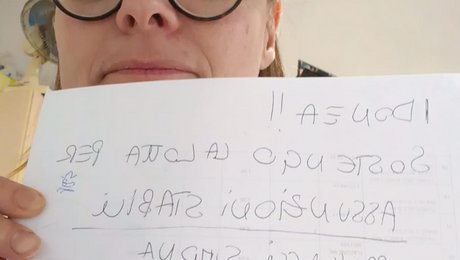 IDONEA !!
SOSTENGO LA LOTTA PER
LE
ASSUNZIONI STABILI